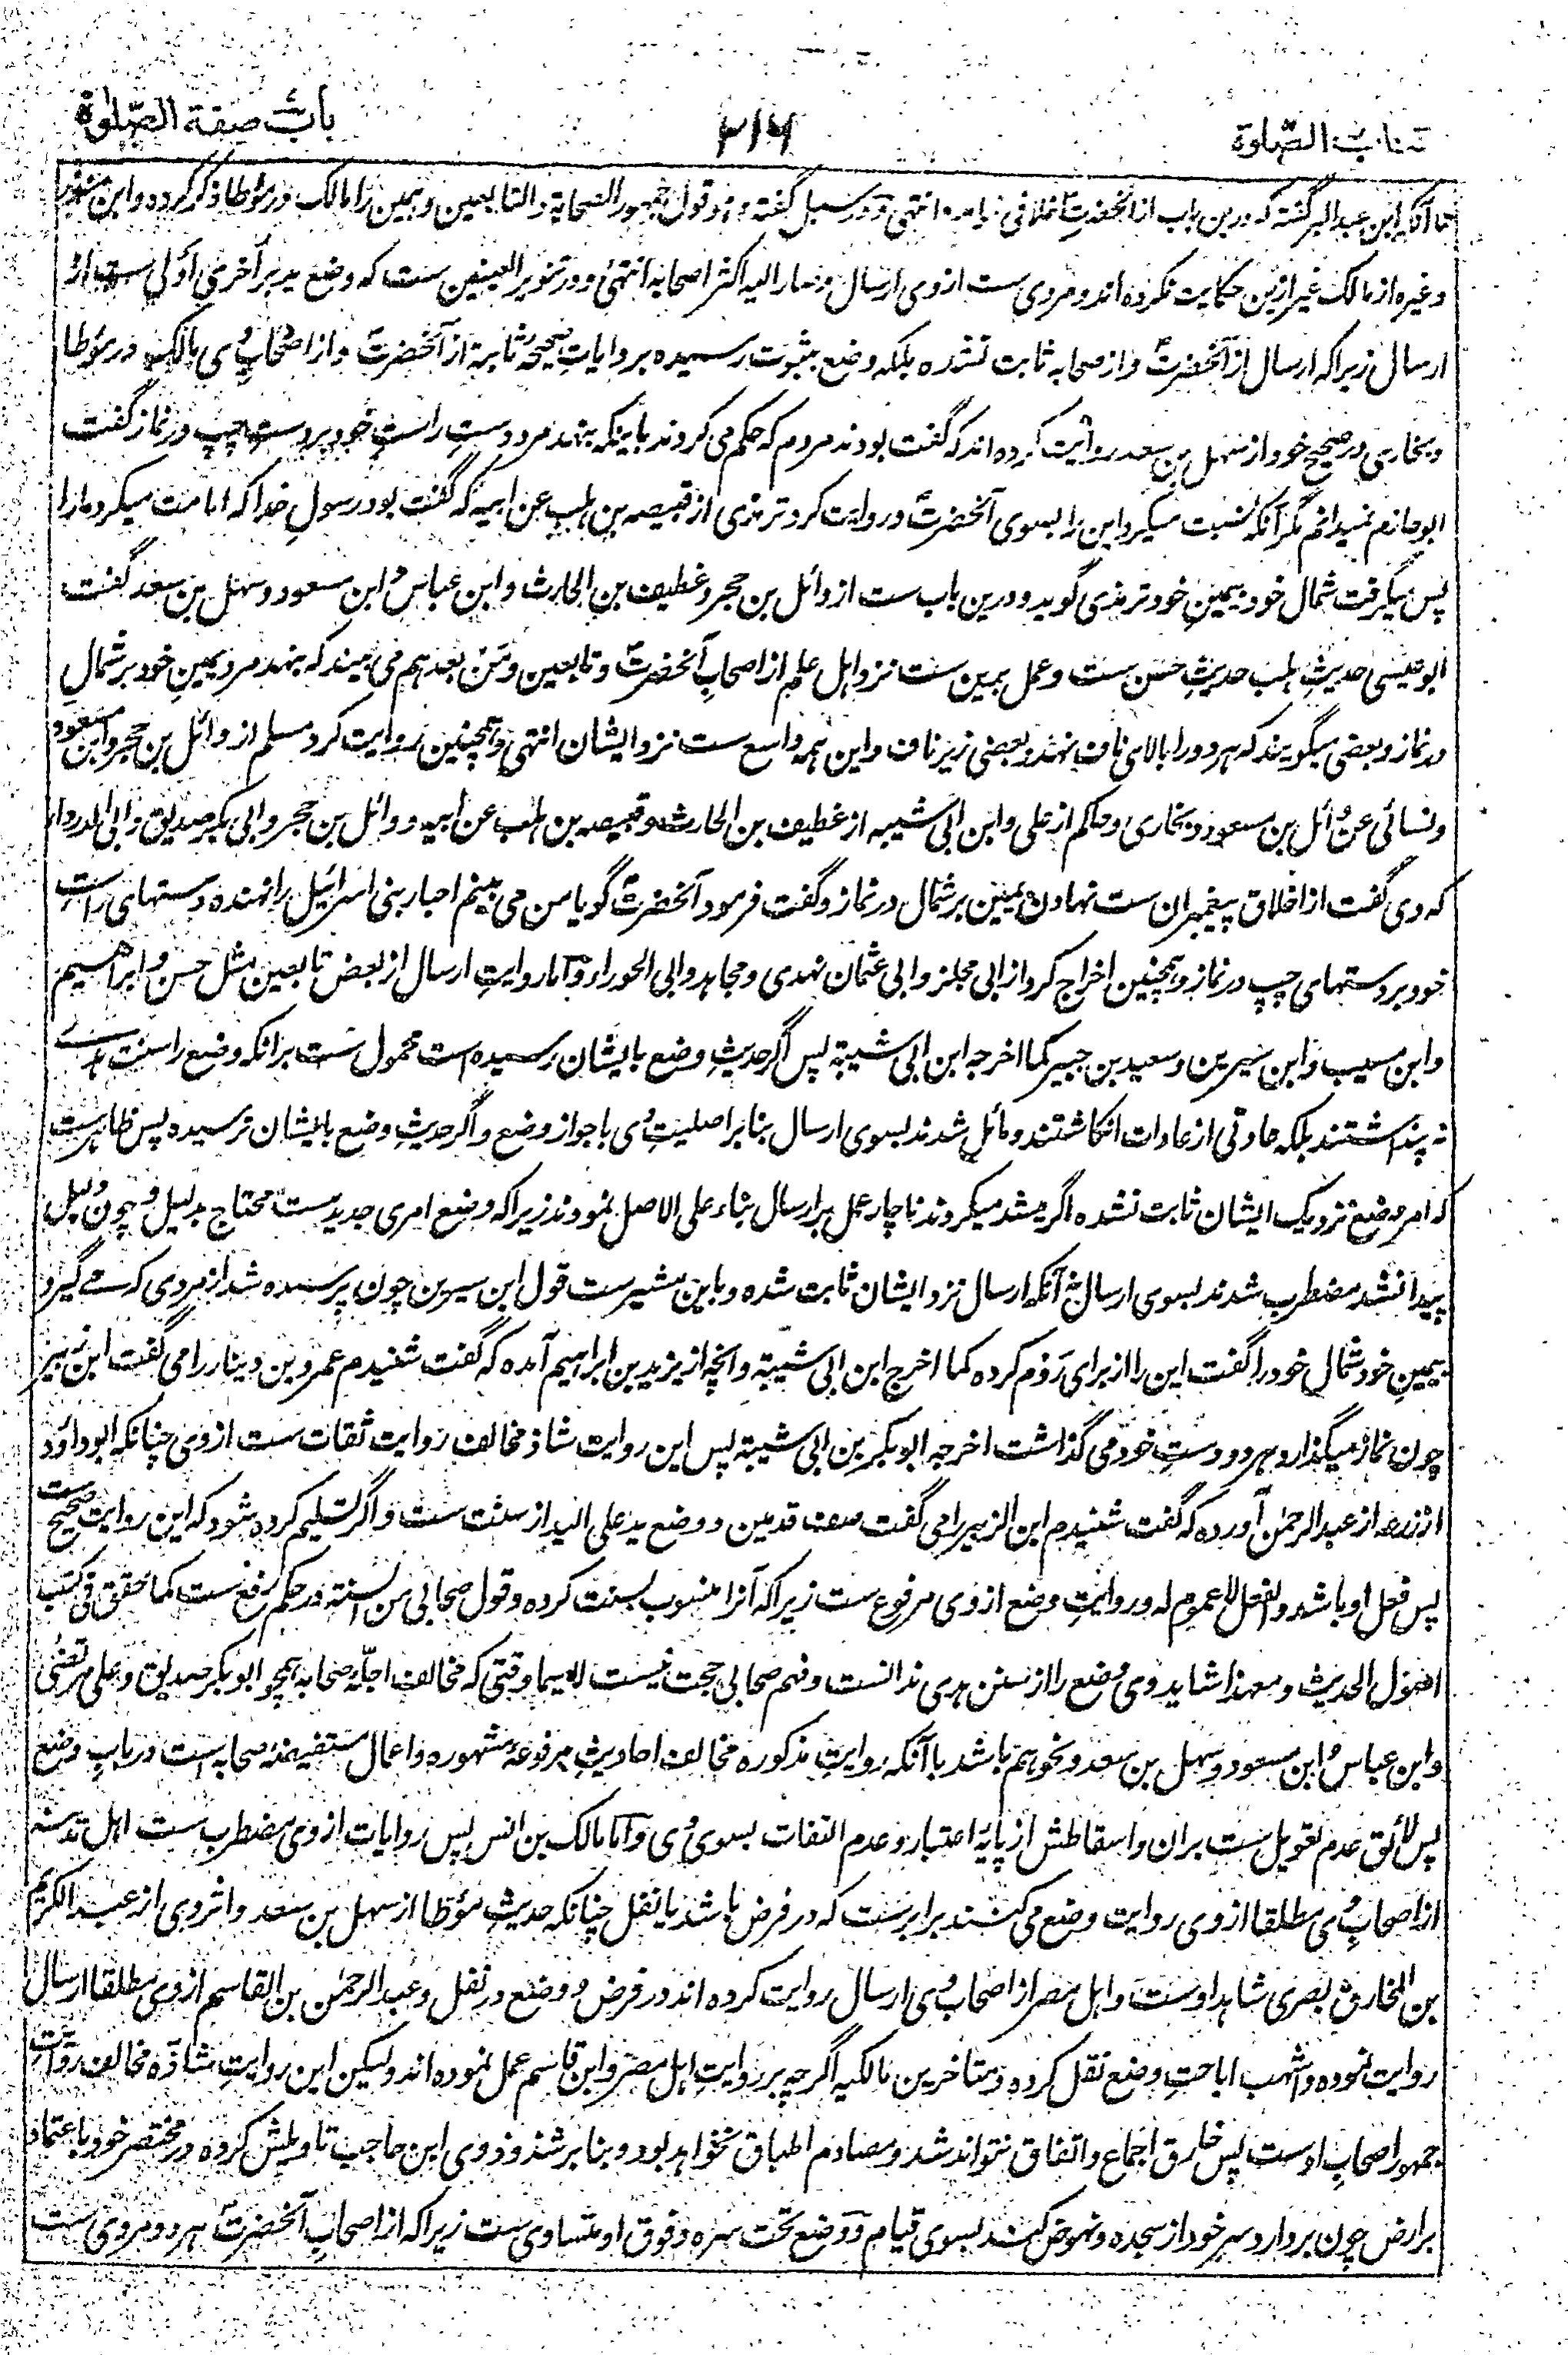 کتاب الصّلوة
۳۱۶
باب صفة الصّلوة
تا آنکه ابن عبد البر گفته که درین باب از آنحضرت خلافی نیامده انتهی و در سبل گفته و هو قول جمهور الصحابة والتابعین و همین را مالک در مؤطا ذکر کرده و ابن منذر
و غیره از مالک غیر ازین حکایت نکرده اند و مروی ست از وی ارسال و صار الیه اکثر اصحابه انتهی و در تنویر العینین ست که وضع ید بر أخری أولی ست از
ارسال زیرا که ارسال از آنحضرت و از صحابه ثابت نشده بلکه وضع بثبوت رسیده بروایات صحیحه ثابته از آنحضرت و از اصحاب وی مالک در مؤطا
و بخاری در صحیح خود از سهل بن سعد روایت کرده اند که گفت بودند مردم که حکم می کردند باینکه بنهد مرد دست راست خود بر دست چپ در نماز گفت
ابو حازم نمیدانم مگر آنکه نسبت میکرد این را بسوی آنحضرت و روایت کرد ترمذی از قبیصه بن هلب عن ابیه که گفت بود رسول خدا که امامت میکرد ما را
پس میگرفت شمال خود بیمین خود ترمذی گوید و درین باب ست از وائل بن حجر و غطیف بن الحارث و ابن عباس و ابن مسعود و سهل بن سعد گفت
ابو عیسی حدیث هلب حدیث حسن ست و عمل برین ست نزد اهل علم از اصحاب آنحضرت و تابعین و من بعدهم می بیند که بنهد مرد یمین خود بر شمال
در نماز و بعضی میگویند که هر دو را بالای ناف نهند و بعضی زیر ناف و این همه واسع ست نزد ایشان انتهی و همچنین روایت کرد مسلم از وائل بن حجر و ابن مسعود
و نسائی عن وائل بن مسعود و بخاری و حاکم از علی و ابن ابی شیبه از غطیف بن الحارث و قبیصه بن هلب عن ابیه و وائل بن حجر و ابی بکر صدیق و ابی الدرداء
که وی گفت از اخلاق پیغمبران ست نهادن یمین بر شمال در نماز و گفت فرمود آنحضرت گویا من می بینم احبار بنی اسرائیل را نهنده دستهای راست
خود بر دستهای چپ در نماز و همچنین اخراج کرد از ابی مجلز و ابی عثمان نهدی و مجاهد و ابی الجوزاء و اما روایت ارسال از بعض تابعین مثل حسن و ابراهیم
و ابن مسیب و ابن سیرین و سعید بن جبیر کما اخرجه ابن ابی شیبة پس اگر حدیث وضع بایشان رسیده است محمول ست برانکه وضع را سنت هدی
نه پنداشتند بلکه عادتی از عادات انگاشتند و مائل شدند بسوی ارسال بنا بر اصلیت وی با جواز وضع و اگر حدیث وضع بایشان نرسیده پس ظاهرست
که امر وضع نزدیک ایشان ثابت نشده اگر میشد میکردند ناچار عمل بر ارسال بناء علی الاصل نمودند زیرا که وضع امری جدید ست محتاج بدلیل و چون دلیل
پیدا نشد مضطرب شدند بسوی ارسال نه آنکه ارسال نزد ایشان ثابت شده و باین مشیرست قول ابن سیرین چون پرسیده شد از مردی که می گیرد
بیمین خود شمال خود را گفت این را از برای روم کرده کما اخرج ابن ابی شیبة و انچه از یزید بن ابراهیم آمده که گفت شنیدم عمرو بن دینار را می گفت ابن زبیر
چون نماز میگذارد هر دو دست خود می گذاشت اخرجه ابو بکر بن ابی شیبة پس این روایت شاذ مخالف روایت ثقات ست از وی چنانکه ابو داؤد
از زرعه از عبد الرحمٰن آورده که گفت شنیدم ابن الزبیر را می گفت صف قدمین و وضع ید علی الید از سنت ست و اگر تسلیم کرده شود که این روایت صحیح ست
پس فعل او باشد والفعل لا عموم له و روایت وضع از وی مرفوع ست زیرا که آنرا منسوب بسنت کرده و قول صحابی من السنة در حکم رفع ست کما حقق فی کتب
اصول الحدیث و معهذا شاید وی وضع را از سنن هدی ندانست و فهم صحابی حجت نیست لاسیما وقتی که مخالف اجلّه صحابه همچو ابو بکر صدیق و علی مرتضی
و ابن عباس و ابن مسعود و سهل بن سعد و نحوهم باشد با آنکه روایت مذکوره مخالف احادیث مرفوعه مشهوره و اعمال مستفیضهٔ صحابه است در باب وضع
پس لائق عدم تعویل ست بران و اسقاطش از پایهٔ اعتبار و عدم التفات بسوی وی و اما مالک بن انس پس روایات از وی مضطرب ست اهل مدینه
از اصحاب وی مطلقا از وی روایت وضع می کنند برابرست که در فرض باشد یا نفل چنانکه حدیث مؤطا از سهل بن سعد و اثر وی از عبد الکریم
بن المخارق بصری شاهد اوست و اهل مصر از اصحاب وی ارسال روایت کرده اند در فرض و وضع در نفل و عبد الرحمٰن بن القاسم از وی مطلقا ارسال
روایت نموده و اشهب اباحت وضع نقل کرده و متاخرین مالکیه اگرچه بر روایت اهل مصر و ابن قاسم عمل نموده اند و لیکن این روایت شاذه مخالف روایت
جمهور اصحاب اوست پس خارق اجماع و اتفاق نتواند شد و مصادم اطباق نخواهد بود و بنا بر شذوذ وی ابن حاجب تاویلش کرده در مختصر خود باعتماد
بر ارض چون بردارد سر خود از سجده و نهوض کند بسوی قیام و وضع تحت سره و فوق او متساوی ست زیرا که از اصحاب آنحضرت هر دو مروی ست